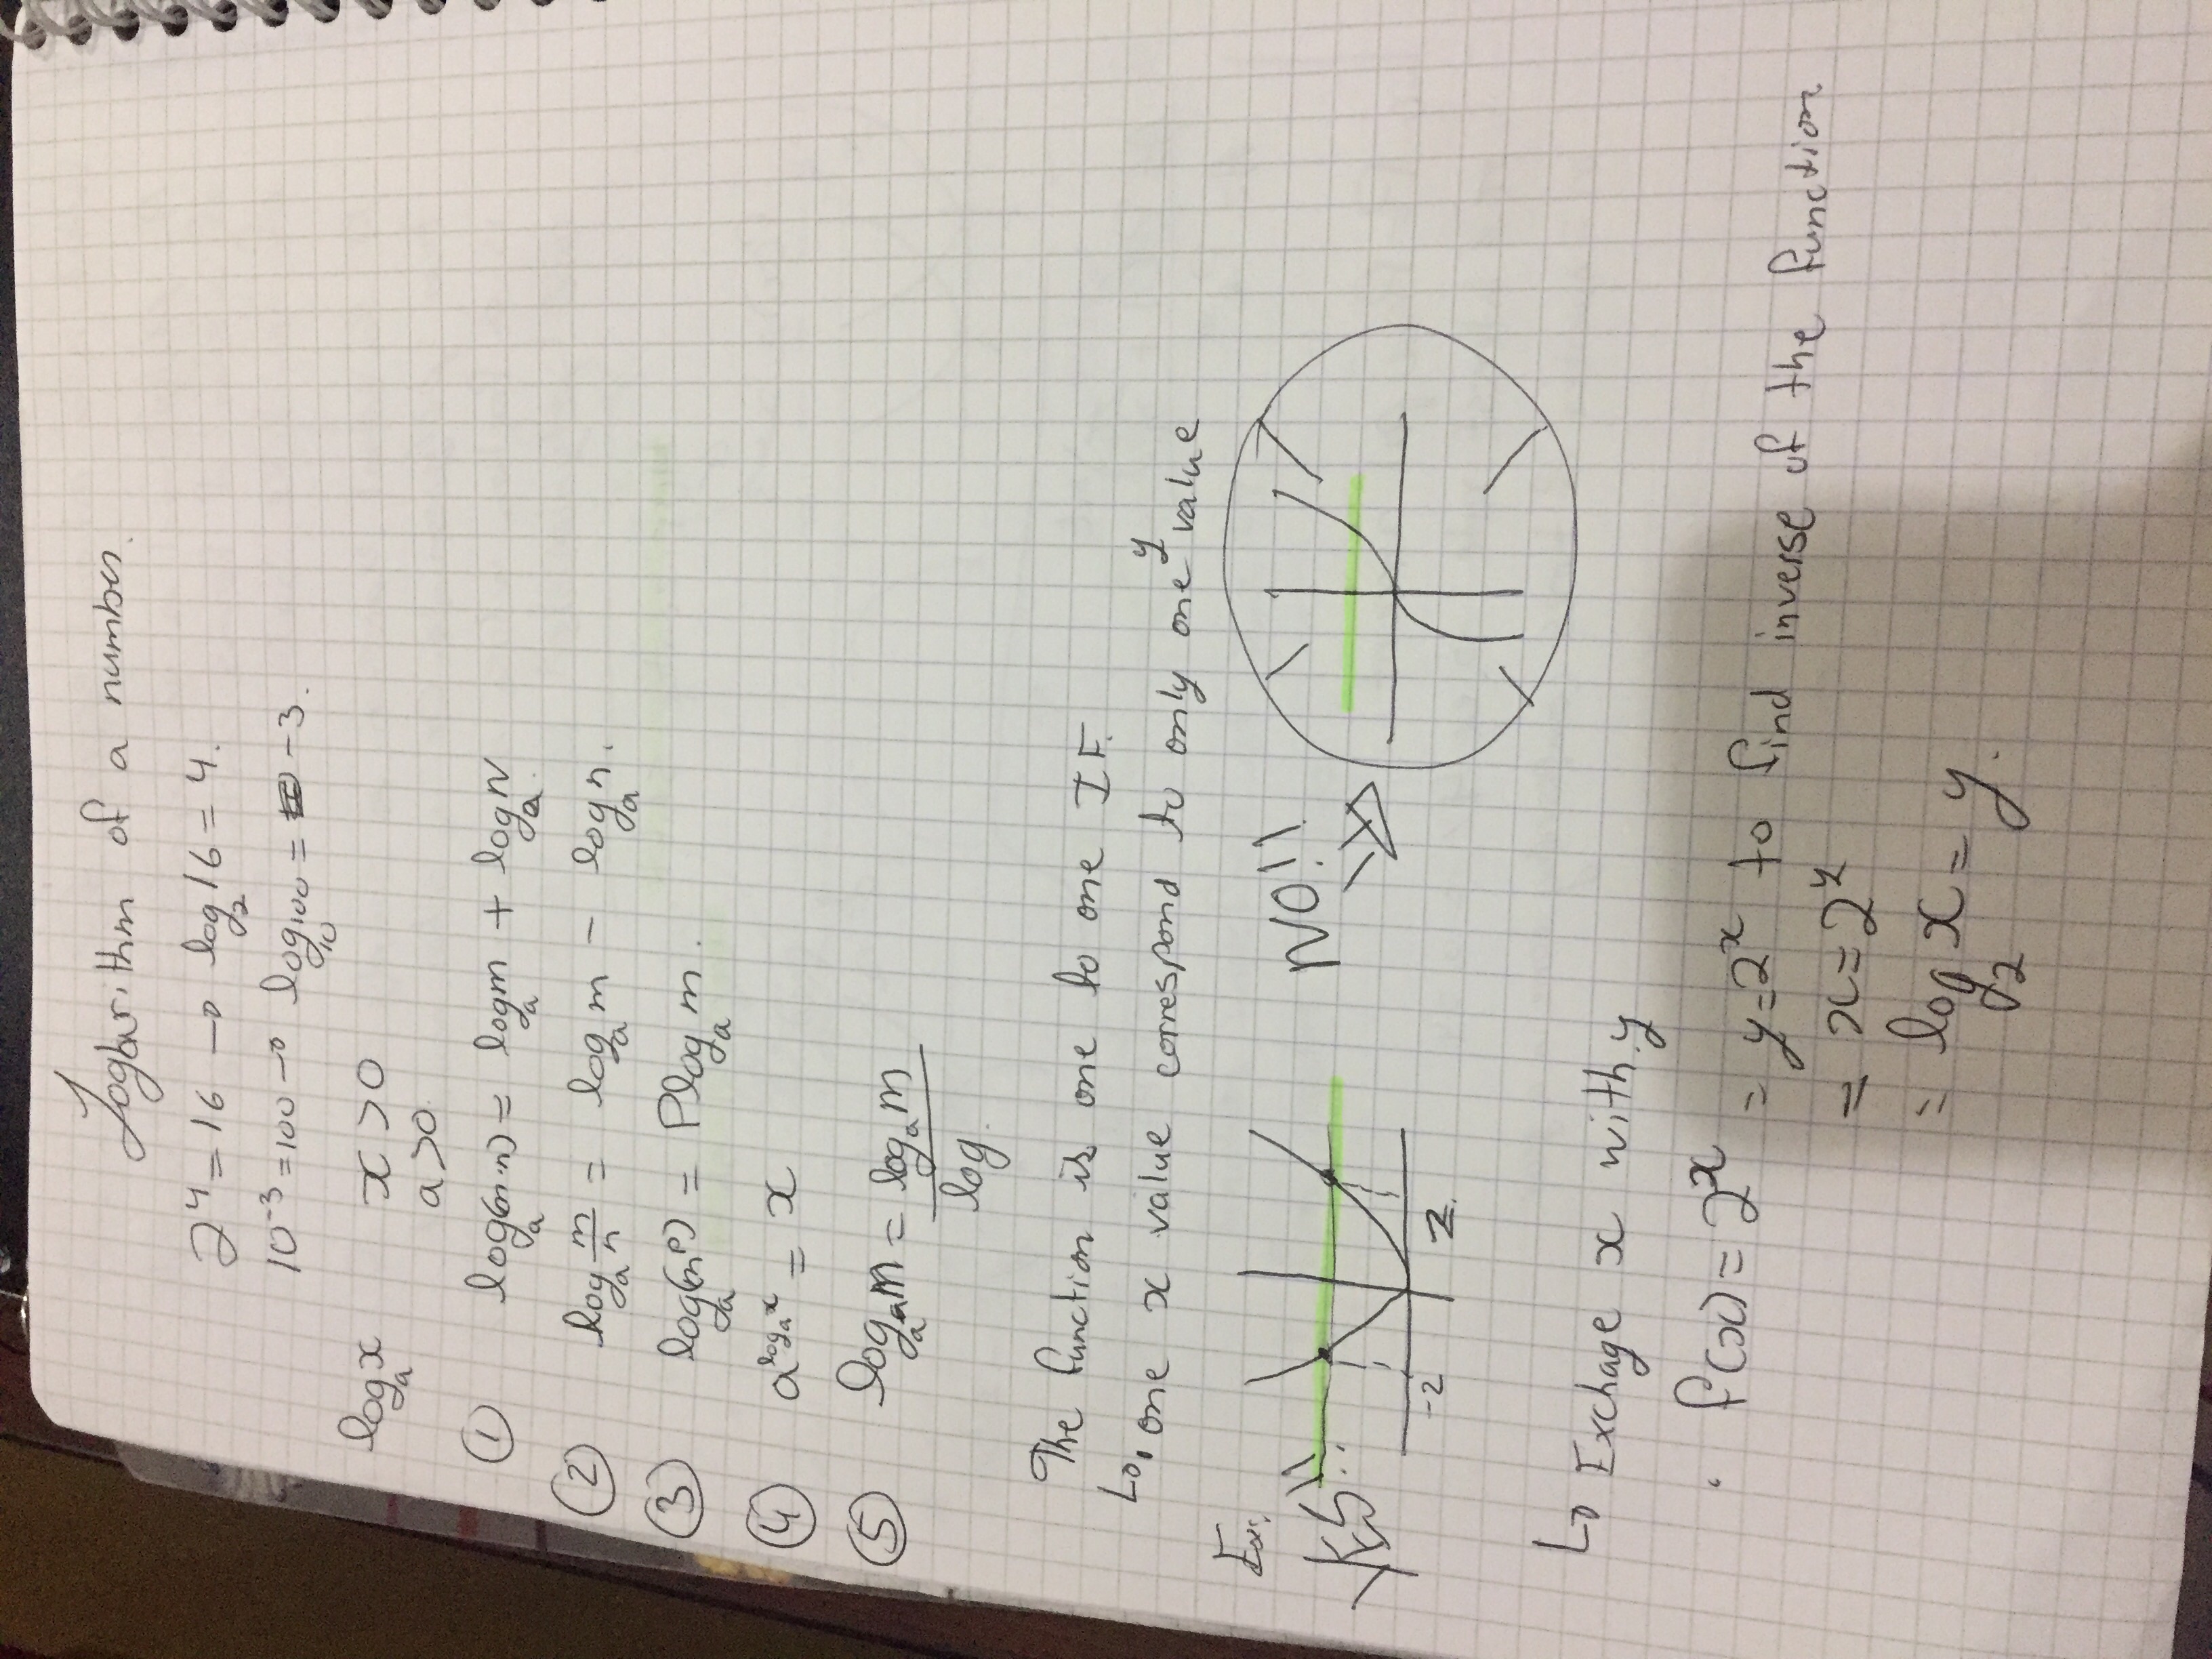 Logbarithm of a number.
2⁴ = 16 → log₂16 = 4.
10⁻³ = 100 → log₁₀100 = -3.
logₐx x > 0
a > 0
① logₐ(m·n) = logₐm + logₐN
② logₐ m/n = logₐm - logₐn.
③ logₐ(mᵖ) = Plogₐm.
④ a^logₐx = x
⑤ logₐm = logₐm / log.
The function is one to one IF.
↳ one x value correspond to only one y value
Ex:
YES!! NO!!
-2 2.
↳ Exchage x with y
. f(x) = 2ˣ = y = 2ˣ to find inverse of the function
= x = 2ʸ
= log₂x = y.